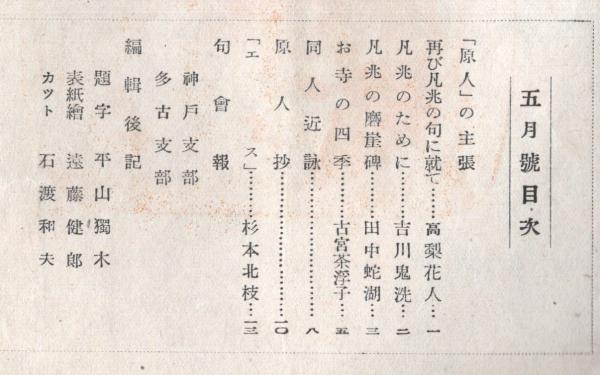 五月號目次
「原人」の主張
再び凡兆の句に就て………高梨花人…一
凡兆のために………吉川鬼洗…二
凡兆の磨崖碑………田中蛇湖…三
お寺の四季………古宮茶浮子…五
同人近詠………八
原人抄………一〇
「エス」………杉本北枝…一三
句會報
神戸支部
多古支部
編輯後記
題字 平山獨木
表紙繪 遠藤健郎
カツト 石渡和夫